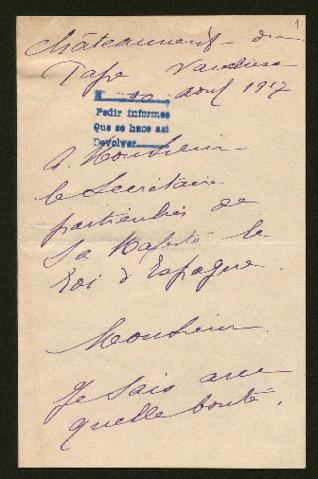 1
Châteauneuf-du
Pape Vaucluse
10 août 1917
Pedir informes
Que se hace asi
Devolver
A Monsieur
le Secrétaire
particulier de
Sa Majesté le
Roi d'Espagne.
Monsieur
Je sais avec
quelle bonté,